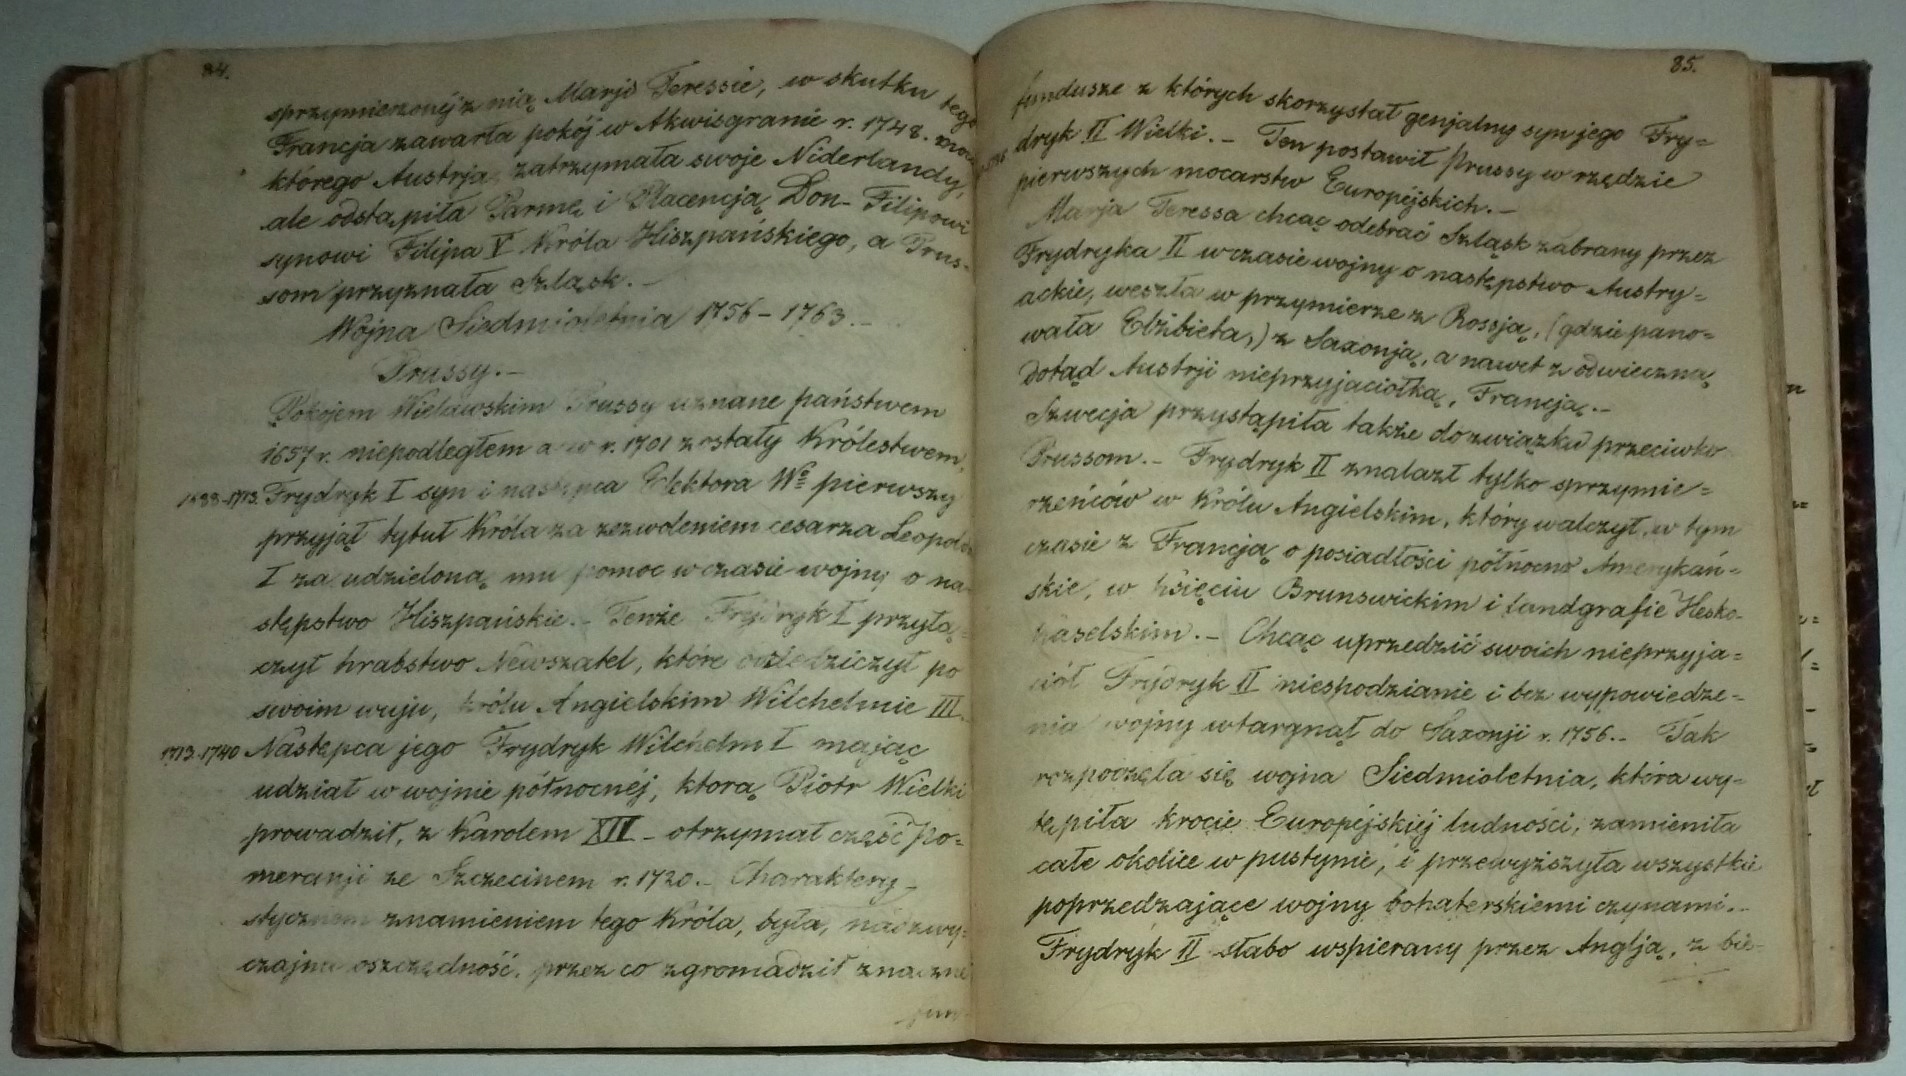 84.
sprzymierzonéj z nią Marji Teressie, w skutku tego
Francja zawarła pokój w Akwisgranie r. 1748. mocą
którego Austrja zatrzymała swoje Niderlandy,
ale odstąpiła Parmę i Placencją Don- Filipowi
synowi Filipa V Króla Hiszpańskiego, a Prus-
som przyznała Szląsk.-
Wojna Siedmioletnia 1756-1763.-
Prussy.-
Pokojem Wielawskim Prussy uznane państwem
1657 r. niepodległem a w r. 1701 zostały Królestwem.
1688-1713. Frydryk I syn i następca Elektora Wgo pierwszy
przyjął tytuł Króla za zezwoleniem cesarza Leopolda
I za udzieloną mu pomoc w czasie wojny o na-
stępstwo Hiszpańskie.- Tenże Frydryk I przyłą=
czył hrabstwo Newszatel, które odziedziczył po
swoim wuju, królu Angielskim Wilchelmie III.
1713-1740 Następca jego Frydryk Wilchelm I mając
udział w wojnie północnéj, ktorą Piotr Wielki
prowadził, z Karolem XII - otrzymał część Po=
meranji ze Szczecinem r. 1720.- Charaktery-
stycznem znamieniem tego Króla, była, nadzwy=
czajna oszczędność, przez co zgromadził znaczne
fun-
85.
fundusze z których skorzystał genjalny syn jego Fry=
dryk II Wielki.- Ten postawił Prussy w rzędzie
pierwszych mocarstw Européjskich.-
Marja Teressa chcąc odebrać Szląsk zabrany przez
Frydryka II w czasie wojny o następstwo Austry=
ackie, weszła w przymierze z Rossją, (gdzie pano=
wała Elżbieta,) z Saxonją, a nawet z odwieczną
dotąd Austrji nieprzyjaciołką, Francją.-
Szwecja przystąpiła także do związku przeciwko
Prussom.- Frydryk II znalazł tylko sprzymie=
rzeńców w Królu Angielskim, który walczył w tym
czasie z Francją o posiadłości północno Amerykań=
skie, w księciu Brunswickim i landgrafie Hesko-
kaselskim.- Chcąc uprzedzić swoich nieprzyja=
ciół Frydryk II niespodzianie i bez wypowiedze=
nia wojny wtargnął do Saxonji r. 1756.- Tak
rozpoczęła się wojna Siedmioletnia, która wy=
tępiła krocie Européjskiéj ludności, zamieniła
całe okolice w pustynie, i przewyższyła wszystkie
poprzedzające wojny bohaterskiemi czynami.-
Frydryk II słabo wspierany przez Anglją, z bie-